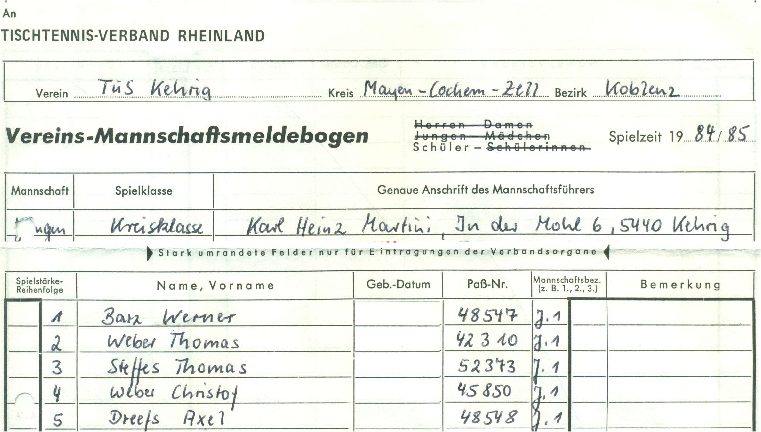 An
TISCHTENNIS-VERBAND RHEINLAND
Verein TuS Kehrig Kreis Mayen-Cochem-Zell Bezirk Koblenz
Vereins-Mannschaftsmeldebogen
Herren – Damen
Jungen – Mädchen
Schüler – Schülerinnen
Spielzeit 19 84/85
Mannschaft Spielklasse Genaue Anschrift des Mannschaftsführers
Jungen Kreisklasse Karl Heinz Martini, In der Mohl 6, 5440 Kehrig
Stark umrandete Felder nur für Eintragungen der Verbandsorgane
Spielstärke-Reihenfolge Name, Vorname Geb.-Datum Paß-Nr. Mannschaftsbez. (z. B. 1., 2., 3.) Bemerkung
1 Barz Werner 48547 J.1
2 Weber Thomas 42310 J.1
3 Steffes Thomas 52373 J.1
4 Weber Christof 45850 J.1
5 Dreefs Axel 48548 J.1